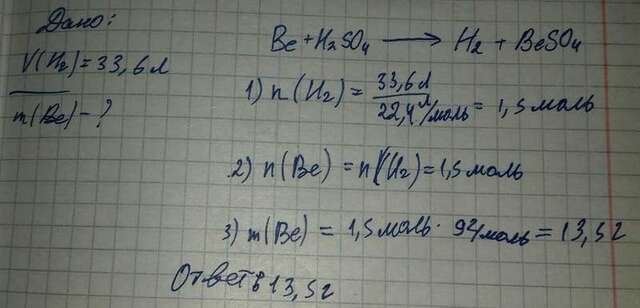 Дано:
V(H₂)=33,6 л
m(Be)-?
Be+H₂SO₄ ⟶ H₂ + BeSO₄
1) n(H₂) = 33,6 л / 22,4 л/моль = 1,5 моль
2) n(Be) = n(H₂)=1,5 моль
3) m(Be) = 1,5 моль · 9 г/моль = 13,5 г
Ответ: 13,5 г